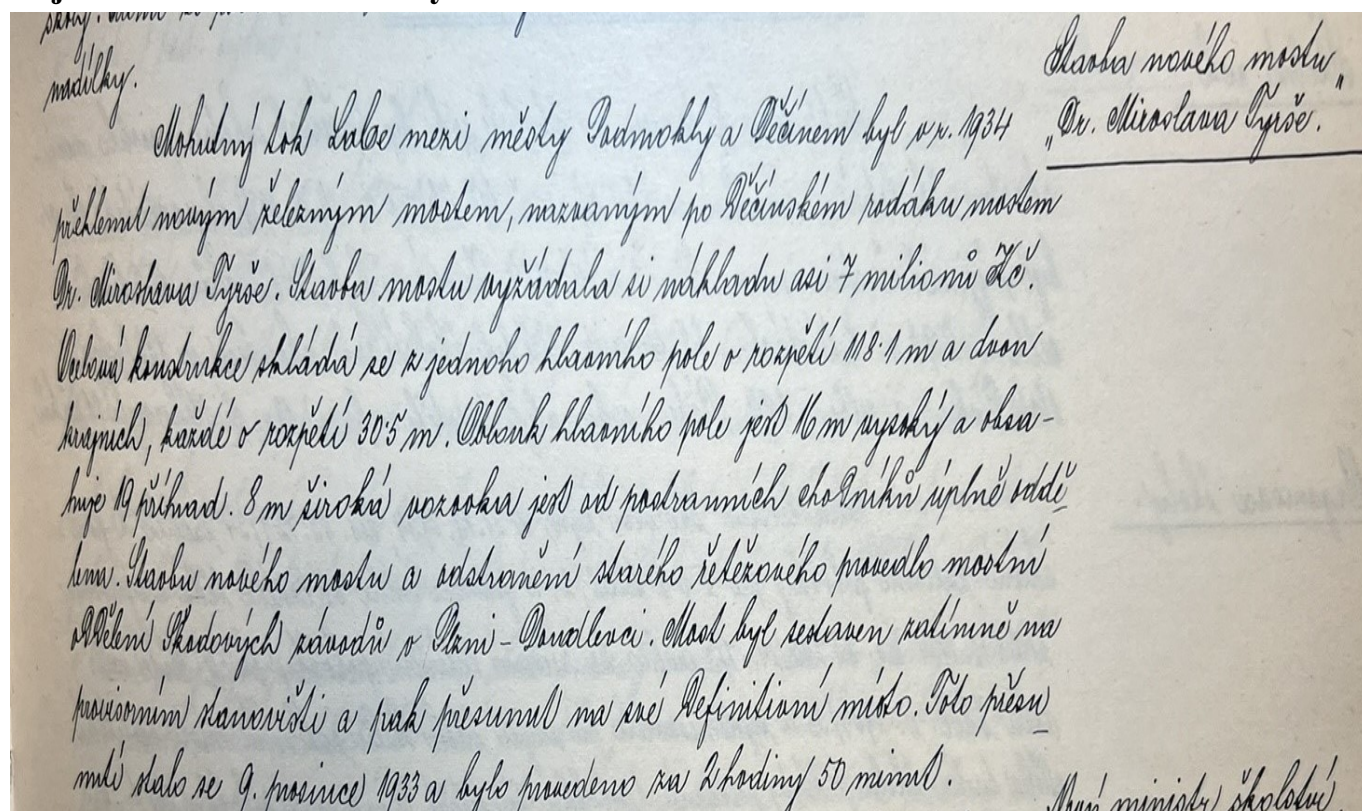 nadílky.
Stavba nového mostu
„Dr. Miroslava Tyrše.“
Mohutný tok Labe mezi městy Podmokly a Děčínem byl v r. 1934
překlenut novým železným mostem, nazvaným po Děčínském rodáku mostem
Dr. Miroslava Tyrše. Stavba mostu vyžádala si nákladu asi 7 milionů Kč.
Ocelová konstrukce skládá se z jednoho hlavního pole o rozpětí 118·1 m a dvou
krajních, každé o rozpětí 30·5 m. Oblouk hlavního pole jest 16 m vysoký a obsa-
huje 19 příhrad. 8 m široká vozovka jest od postranních chodníků úplně oddě-
lena. Stavbu nového mostu a odstranění starého řetězového provedlo mostní
oddělení Škodových závodů v Plzni - Doudlevci. Most byl sestaven zatímně na
provisorním stanovišti a pak přesunut na své definitivní místo. Toto přesu-
nutí stalo se 9. prosince 1933 a bylo provedeno za 2 hodiny 50 minut.
ministr školství